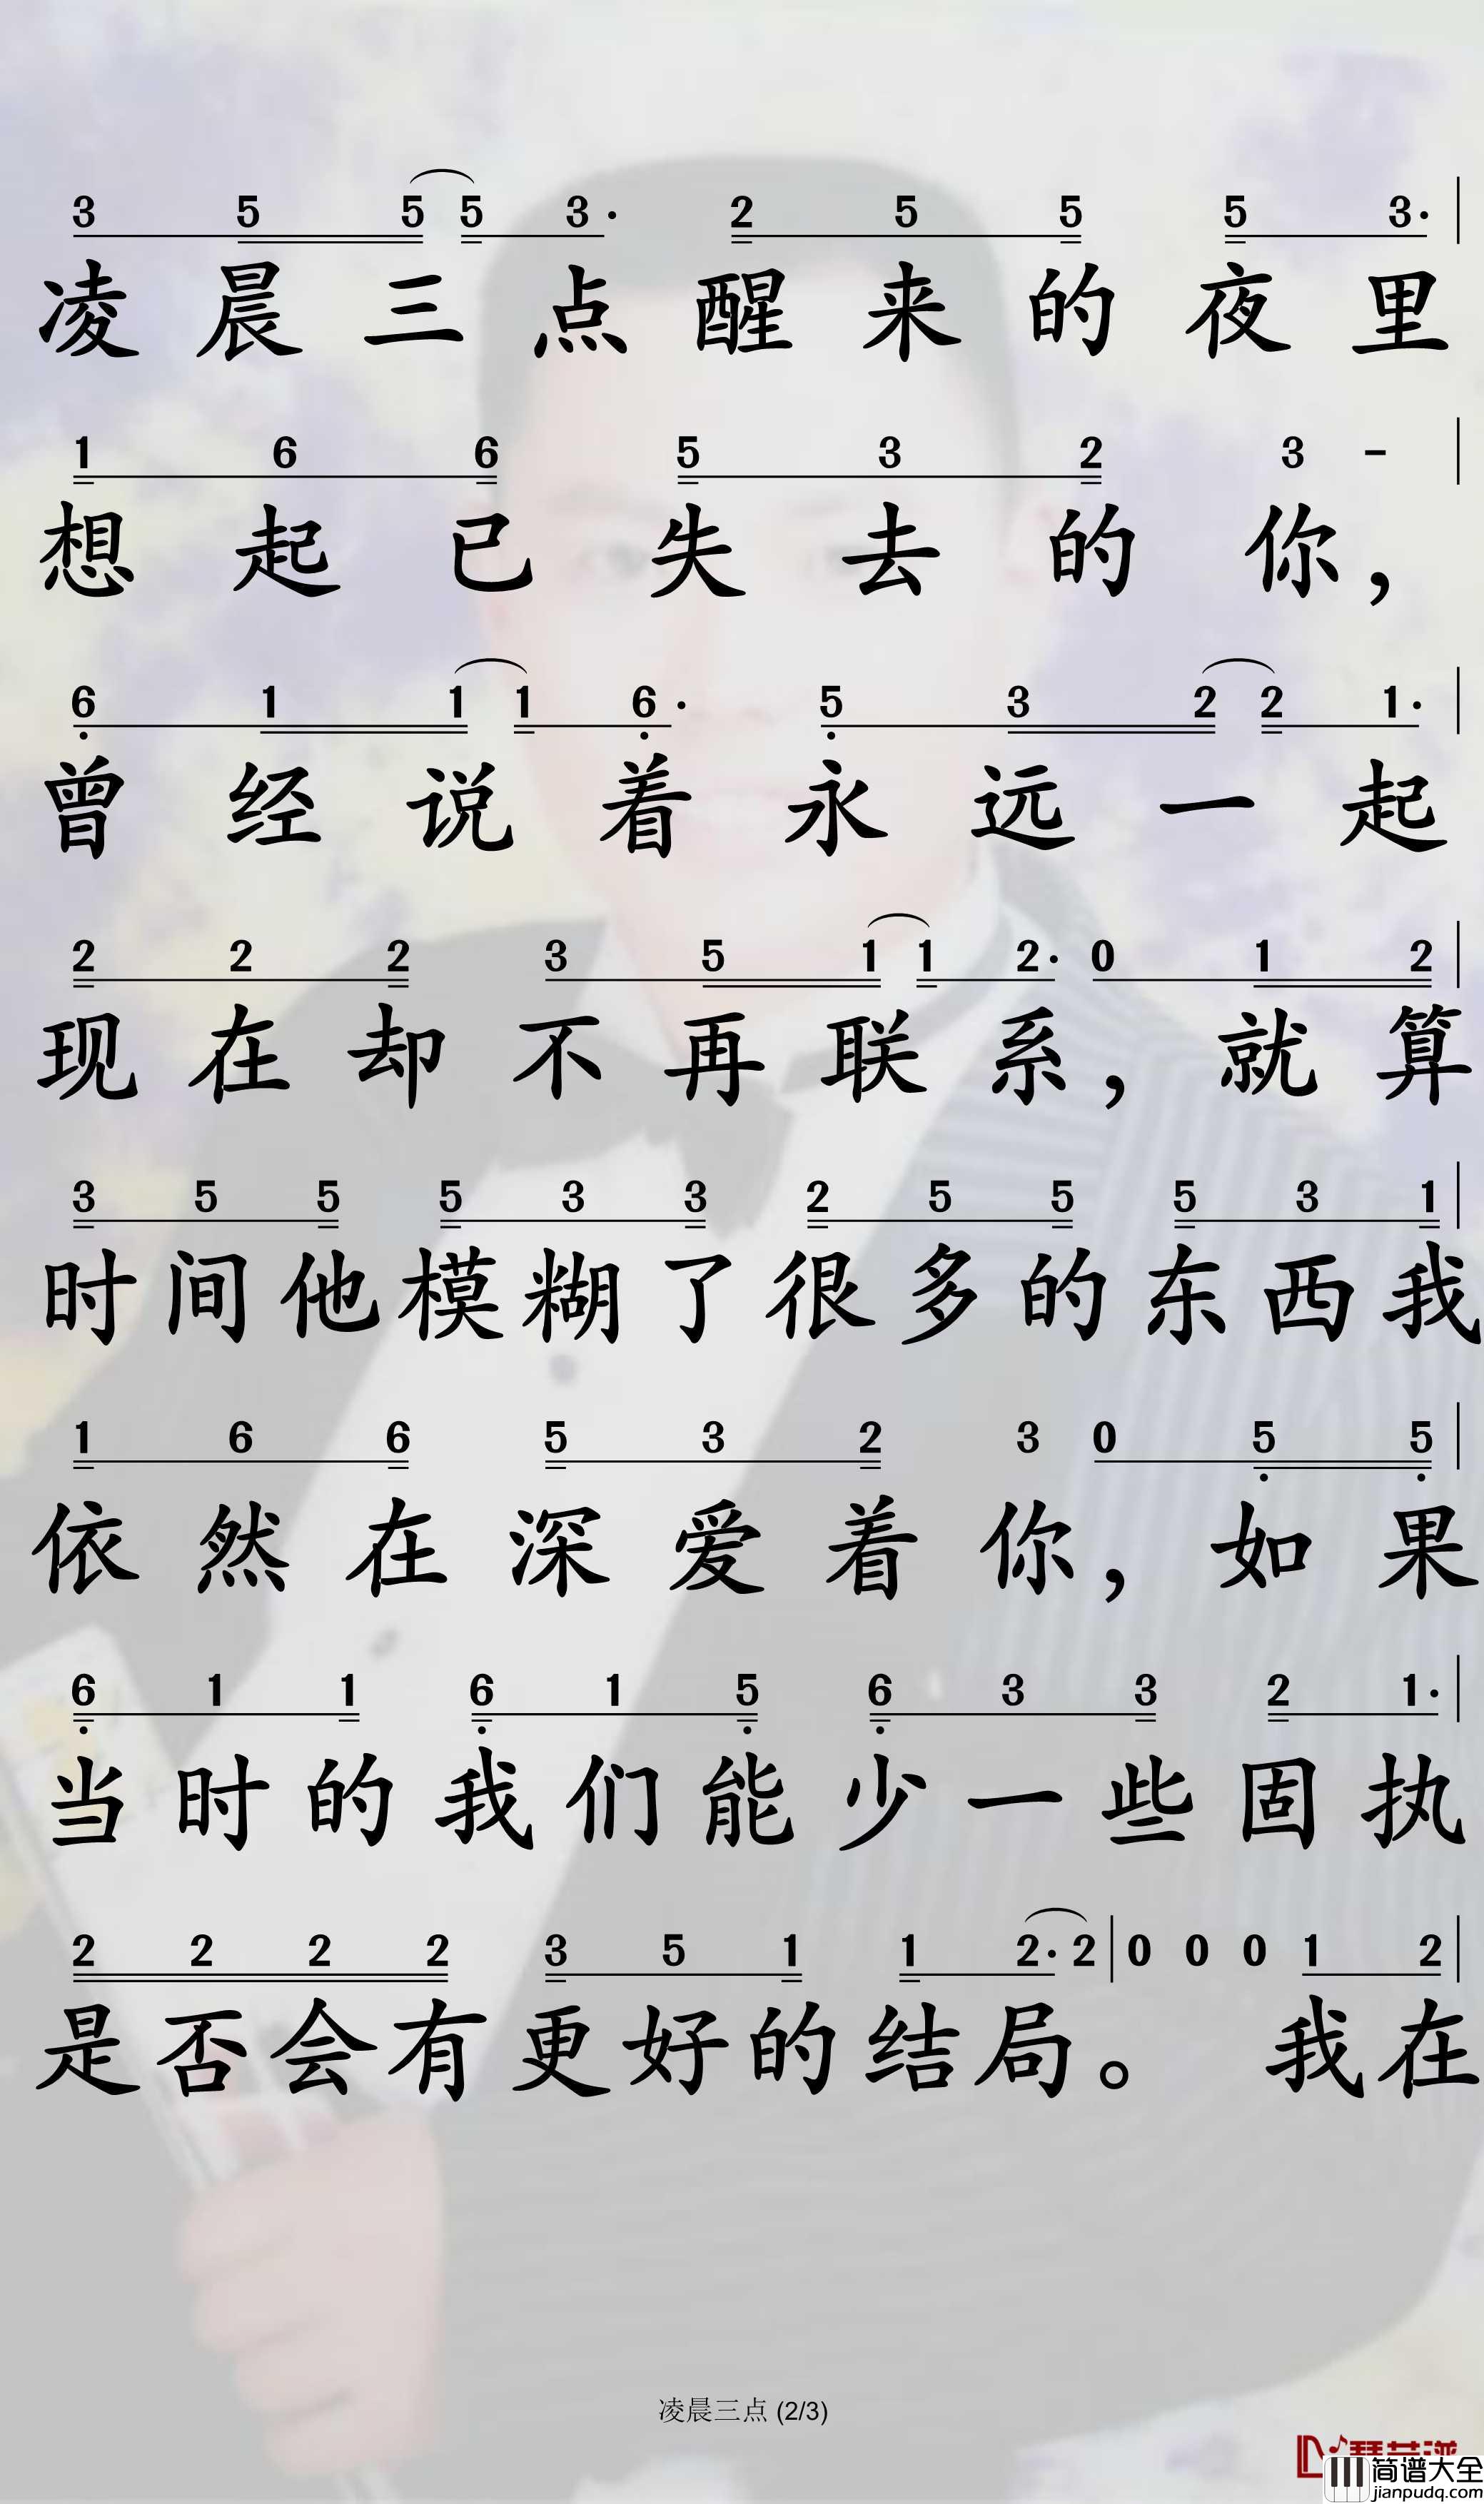 3 5 5 5 3· 2 5 5 5 3·
凌晨三点醒来的夜里
1 6 6 5 3 2 3 -
想起已失去的你，
6 1 1 1 6· 5 3 2 2 1·
曾经说着永远一起
2 2 2 3 5 1 1 2· 0 1 2
现在却不再联系，就算
3 5 5 5 3 3 2 5 5 5 3 1
时间他模糊了很多的东西我
1 6 6 5 3 2 3 0 5 5
依然在深爱着你，如果
6 1 1 6 1 5 6 3 3 2 1·
当时的我们能少一些固执
2 2 2 2 3 5 1 1 2· 2 | 0 0 0 1 2
是否会有更好的结局。 我在
凌晨三点 (2/3)
简谱大全
jianpudq.com